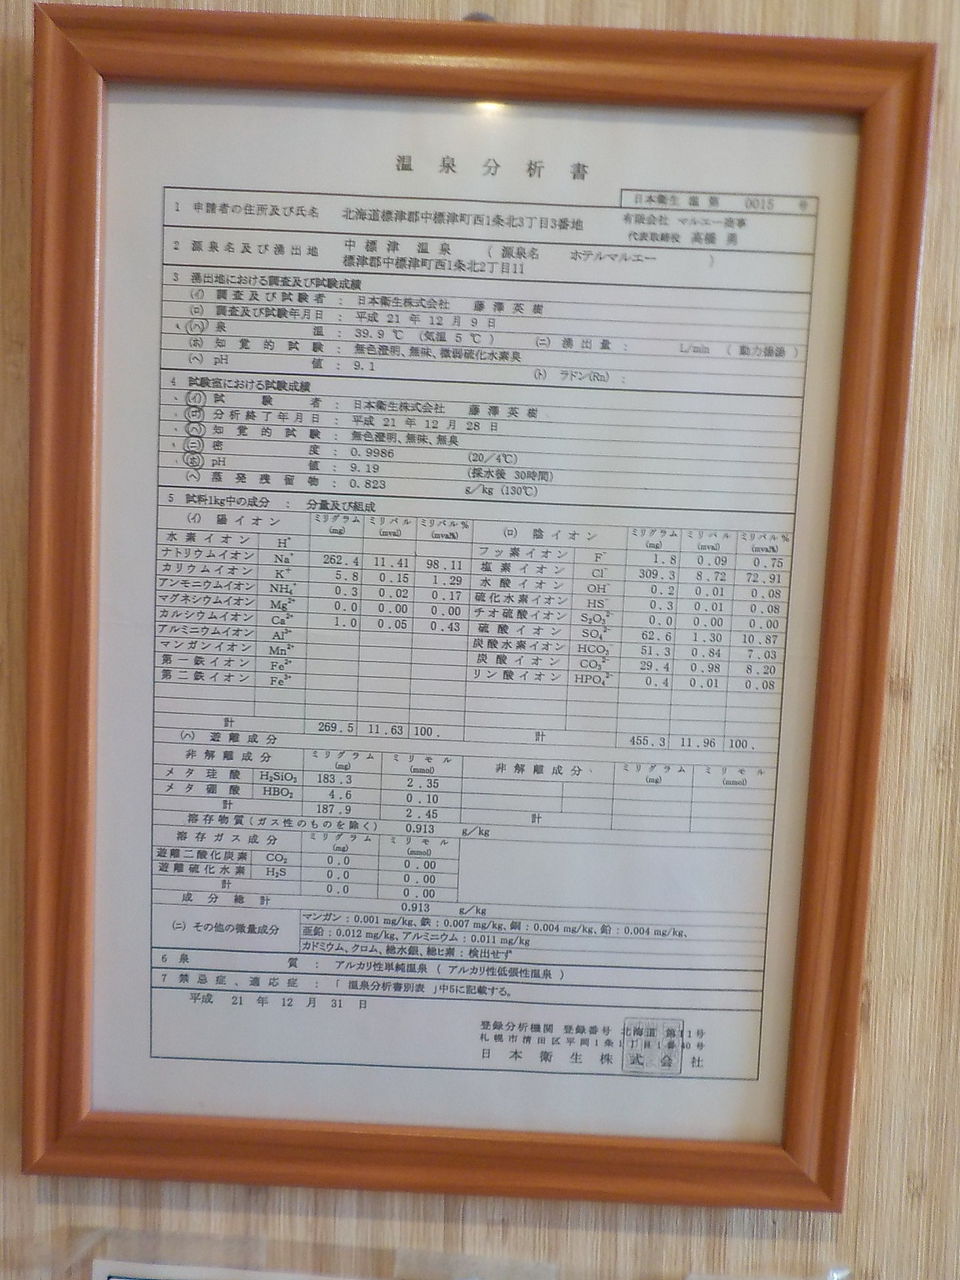 温泉分析書
日本衛生 温 第 0015 号
1 申請者の住所及び氏名 北海道標津郡中標津町西1条北3丁目3番地 有限会社 マルエー商事
代表取締役 高橋 勇
2 源泉名及び湧出地 中標津 温泉 ( 源泉名 ホテルマルエー )
標津郡中標津町西1条北2丁目11
3 湧出地における調査及び試験成績
(イ) 調査及び試験者 : 日本衛生株式会社 藤澤英樹
(ロ) 調査及び試験年月日 : 平成 21 年 12 月 9 日
(ハ) 泉温 : 39.9 ℃ (気温 5 ℃) (ニ) 湧出量 : L/min ( 動力揚湯 )
(ホ) 知覚的試験 : 無色澄明、無味、微弱硫化水素臭
(ヘ) pH値 : 9.1 (ト) ラドン(Rn) :
4 試験室における試験成績
(イ) 試験者 : 日本衛生株式会社 藤澤英樹
(ロ) 分析終了年月日 : 平成 21 年 12 月 28 日
(ハ) 知覚的試験 : 無色澄明、無味、無臭
(ニ) 密度 : 0.9986 (20/4℃)
(ホ) pH値 : 9.19 (採水後 30時間)
(ヘ) 蒸発残留物 : 0.823 g/kg (130℃)
5 試料1kg中の成分 : 分量及び組成
(イ) 陽イオン ミリグラム(mg) ミリバル(mval) ミリバル%(mval%) (ロ) 陰イオン ミリグラム(mg) ミリバル(mval) ミリバル%(mval%)
水素イオン H⁺ フッ素イオン F⁻ 1.8 0.09 0.75
ナトリウムイオン Na⁺ 262.4 11.41 98.11 塩素イオン Cl⁻ 309.3 8.72 72.91
カリウムイオン K⁺ 5.8 0.15 1.29 水酸イオン OH⁻ 0.2 0.01 0.08
アンモニウムイオン NH₄⁺ 0.3 0.02 0.17 硫化水素イオン HS⁻ 0.3 0.01 0.08
マグネシウムイオン Mg²⁺ 0.0 0.00 0.00 チオ硫酸イオン S₂O₃²⁻ 0.0 0.00 0.00
カルシウムイオン Ca²⁺ 1.0 0.05 0.43 硫酸イオン SO₄²⁻ 62.6 1.30 10.87
アルミニウムイオン Al³⁺ 炭酸水素イオン HCO₃⁻ 51.3 0.84 7.03
マンガンイオン Mn²⁺ 炭酸イオン CO₃²⁻ 29.4 0.98 8.20
第一鉄イオン Fe²⁺ リン酸イオン HPO₄²⁻ 0.4 0.01 0.08
第二鉄イオン Fe³⁺
計 269.5 11.63 100. 計 455.3 11.96 100.
(ハ) 遊離成分
非解離成分 ミリグラム(mg) ミリモル(mmol) 非解離成分 ミリグラム(mg) ミリモル(mmol)
メタ珪酸 H₂SiO₃ 183.3 2.35
メタ硼酸 HBO₂ 4.6 0.10
計 187.9 2.45 計
溶存物質(ガス性のものを除く) 0.913 g/kg
溶存ガス成分 ミリグラム(mg) ミリモル(mmol)
遊離二酸化炭素 CO₂ 0.0 0.00
遊離硫化水素 H₂S 0.0 0.00
計 0.0 0.00
成分総計 0.913 g/kg
(ニ) その他の微量成分 マンガン:0.001 mg/kg、鉄:0.007 mg/kg、銅:0.004 mg/kg、鉛:0.004 mg/kg、
亜鉛:0.012 mg/kg、アルミニウム:0.011 mg/kg
カドミウム、クロム、総水銀、総ヒ素:検出せず
6 泉質 : アルカリ性単純温泉 ( アルカリ性低張性温泉 )
7 禁忌症、適応症 : 「 温泉分析書別表 」中5に記載する。
平成 21 年 12 月 31 日
登録分析機関 登録番号 北海道 第11号
札幌市清田区平岡1条1丁目1番40号
日本衛生株式会社